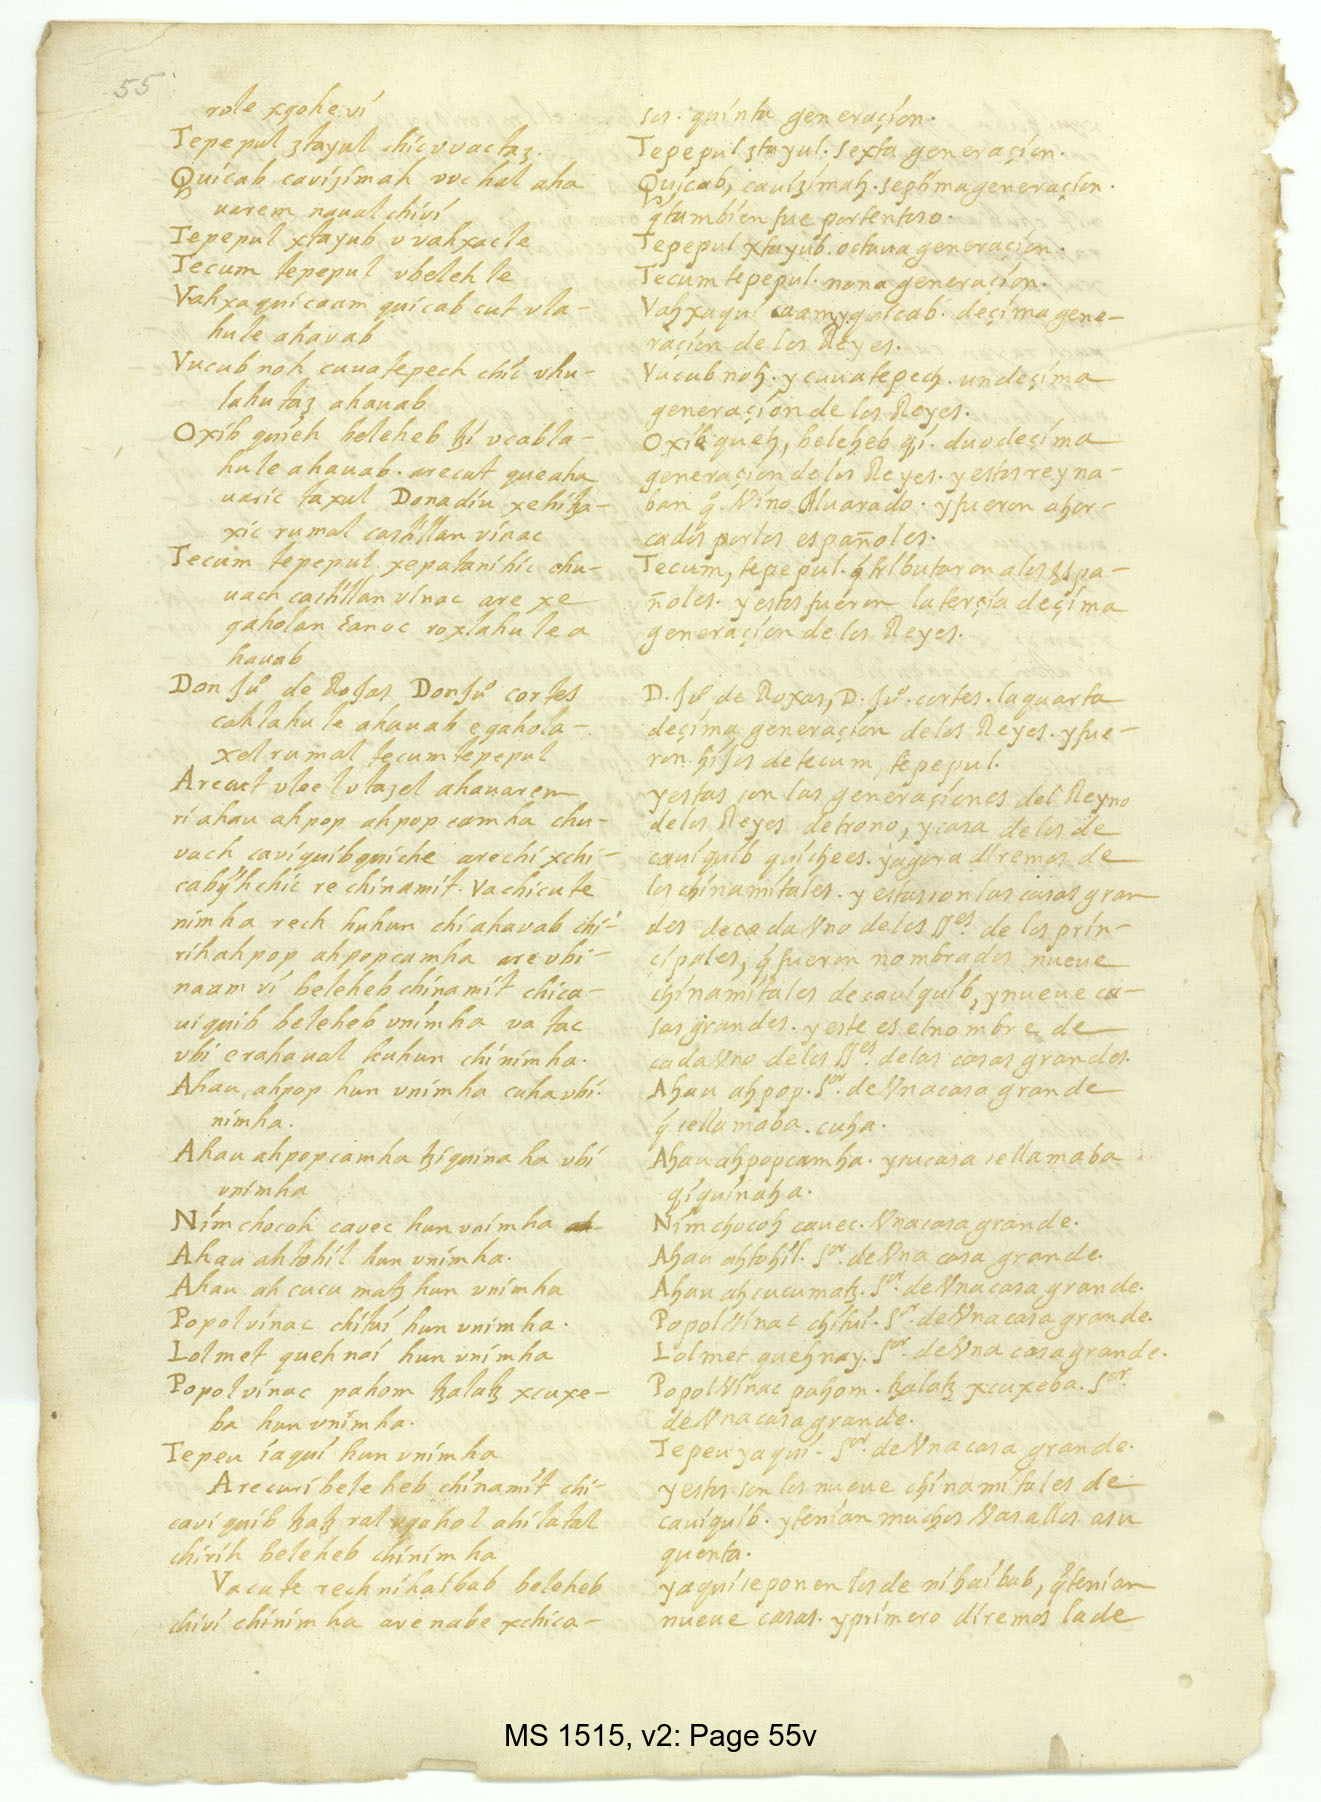 55
role xqohe vi
Tepepul ztayul chic vvactaz.
Quicab cavizimah vvchal aha
uarem naual chivi
Tepepul xtayub v vahxacle
Tecum tepepul vbeleh le
Vahxaqui caam quicab cut vla-
hule ahavab
Vucub noh cauatepech chic vhu-
lahu taz ahauab
Oxib quieh beleheb tzi vcabla-
hule ahauab. arecut queaha
uaric taxul Donadiu xehitza-
xic rumal castillan vinac
Tecum tepepul xepatanihic chu-
uach castillan vinac are xe
gaholan canoc roxlahu le a
hauab
Don Juº de Rojas Don Juº cortes
cahlahu le ahauab e gahola-
xel rumal tecum tepepul
Arecut vlee l vtazel ahauarem
ri ahau ahpop ahpop camha chu-
vach caviquib quiche arechi xchi-
cabÿh chic re chinamit. Vachicute
nimha rech huhun chi ahavab chi-
rih ahpop ahpopcamha are vbi-
naam vi beleheb chinamit chica-
uiquib beleheb vnimha va tac
vbi erahaual huhun chi nimha.
Ahau, ahpop hun vnimha cuha vbi.
nimha.
Ahau ahpopcamha tziquina ha vbi
vnimha
Nim chocoh cavec hun vnimha
Ahau ahtohil hun vnimha.
Ahau ah cucu matz hun vnimha
Popol vinac chitui hun vnimha.
Lolmet queh nai hun vnimha
Popol vinac pahom tzalatz xcuxe-
ba hun vnimha.
Tepeu iaqui hun vnimha
Arecuri bele heb chinamit chi-
cavi quib tzatz ral vgahol ahilatal
chirih beleheb chinim ha
Vacute rech nihaibab beleheb
chivi chinim ha are nabe xchica-
sos. quinta generaçion.
Tepepul ztayul. sexta generaçion.
Quicab, cauizimah. septima generaçion.
q̃ tambien fue portentoso.
Tepepul xtayub. octaua generaçion.
Tecum tepepul. nona generaçion.
Vahxaqui caam, y quicab. deçima gene-
raçion de los Reyes.
Vucub noh. y cauatepech. undeçima
generaçion de los Reyes.
Oxib queh, beleheb qi. duodeçima
generaçion de los Reyes. y estos reyna-
ban q̃. Vino Alvarado. y fueron ahor-
cados por los españoles.
Tecum, tepepul. q̃ tributaron a los Espa-
ñoles. y estos fueron la terçia deçima
generaçion de los Reyes.
D. Juº de Roxas, D. Juº. cortes. la quarta
deçima generaçion de los Reyes. y fue-
ron hijos de tecum, tepepul.
y estas son las generaçiones del Reyno
de los Reyes de trono, y casa de los de
cauiquib quichees. y agora diremos de
los chinamitales. y estas son las casas gran
des de cada Vno de los SSes. de los prin-
çipales, q̃ fueron nombrados nueue
chinamitales de cauiquib, y nueue ca-
sas grandes. y este es el nombre de
cada Vno de los SSes. de las casas grandes.
Ahau ahpop. Sor. de Vna casa grande
q̃ se llamaba. cuha.
Ahau ahpopcamha. y su casa se llamaba
qiquinaha.
Nim chocoh cauec. Vna casa grande.
Ahau ahtohil. Sor. de Vna casa grande.
Ahau ahcucumatz. Sor. de Vna casa grande.
Popol Vinac chitui. Sor. de Vna casa grande.
Lolmet quehnay. Sor. de Vna casa grande.
Popol Vinac pahom. tzalatz xcuxeba. Sor.
de Vna casa grande.
Tepeu yaqui. Sor. de Vna casa grande.
y estos son los nueue chinamitales de
cauiquib. y tenian muchos Vasallos a su
quenta.
y aqui se ponen los de nihaibab, q̃ tenian
nueue casas. y primero diremos la de
MS 1515, v2: Page 55v